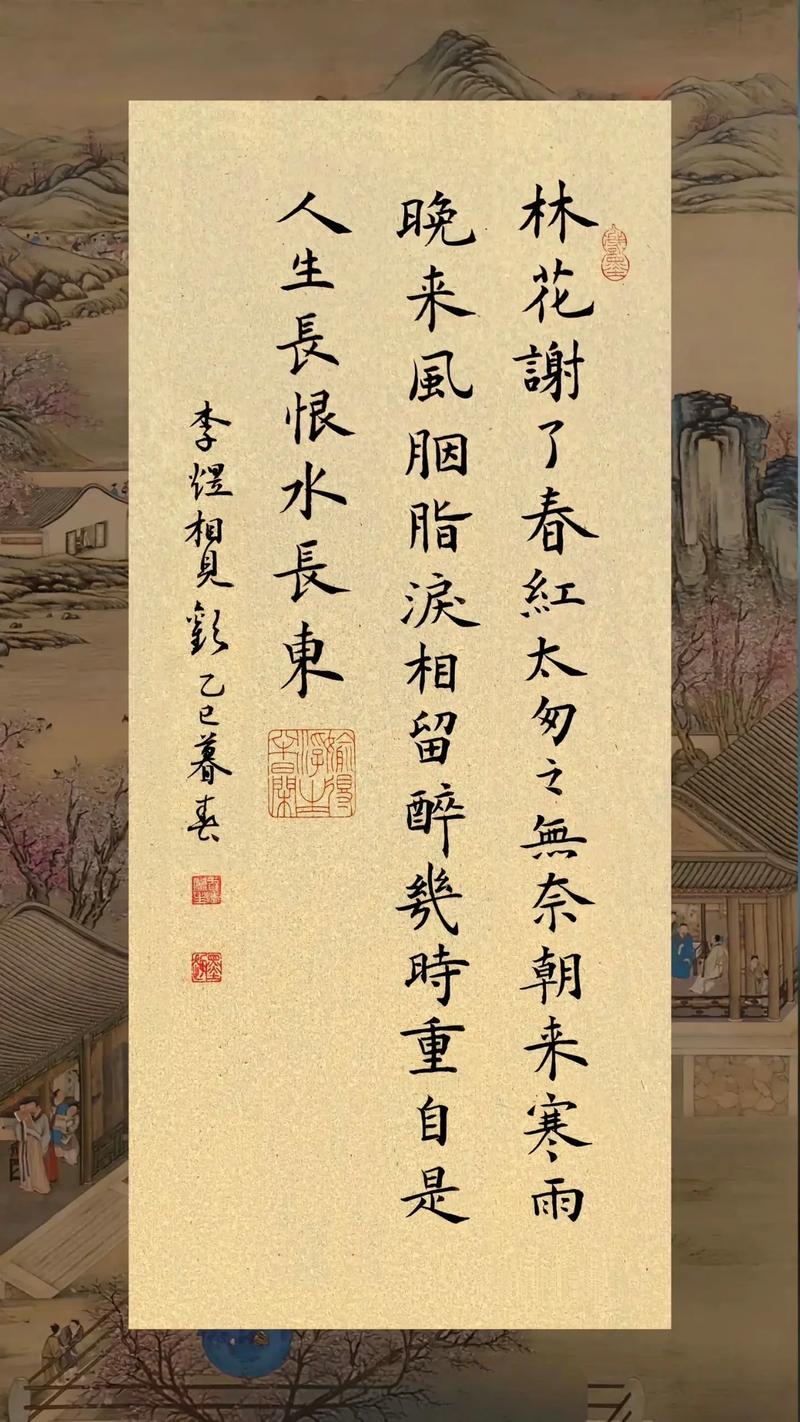 林花謝了春紅太匆之無奈朝来寒雨
晩来風胭脂淚相留醉幾時重自是
人生長恨水長東
李煜相見歡乙巳暮春